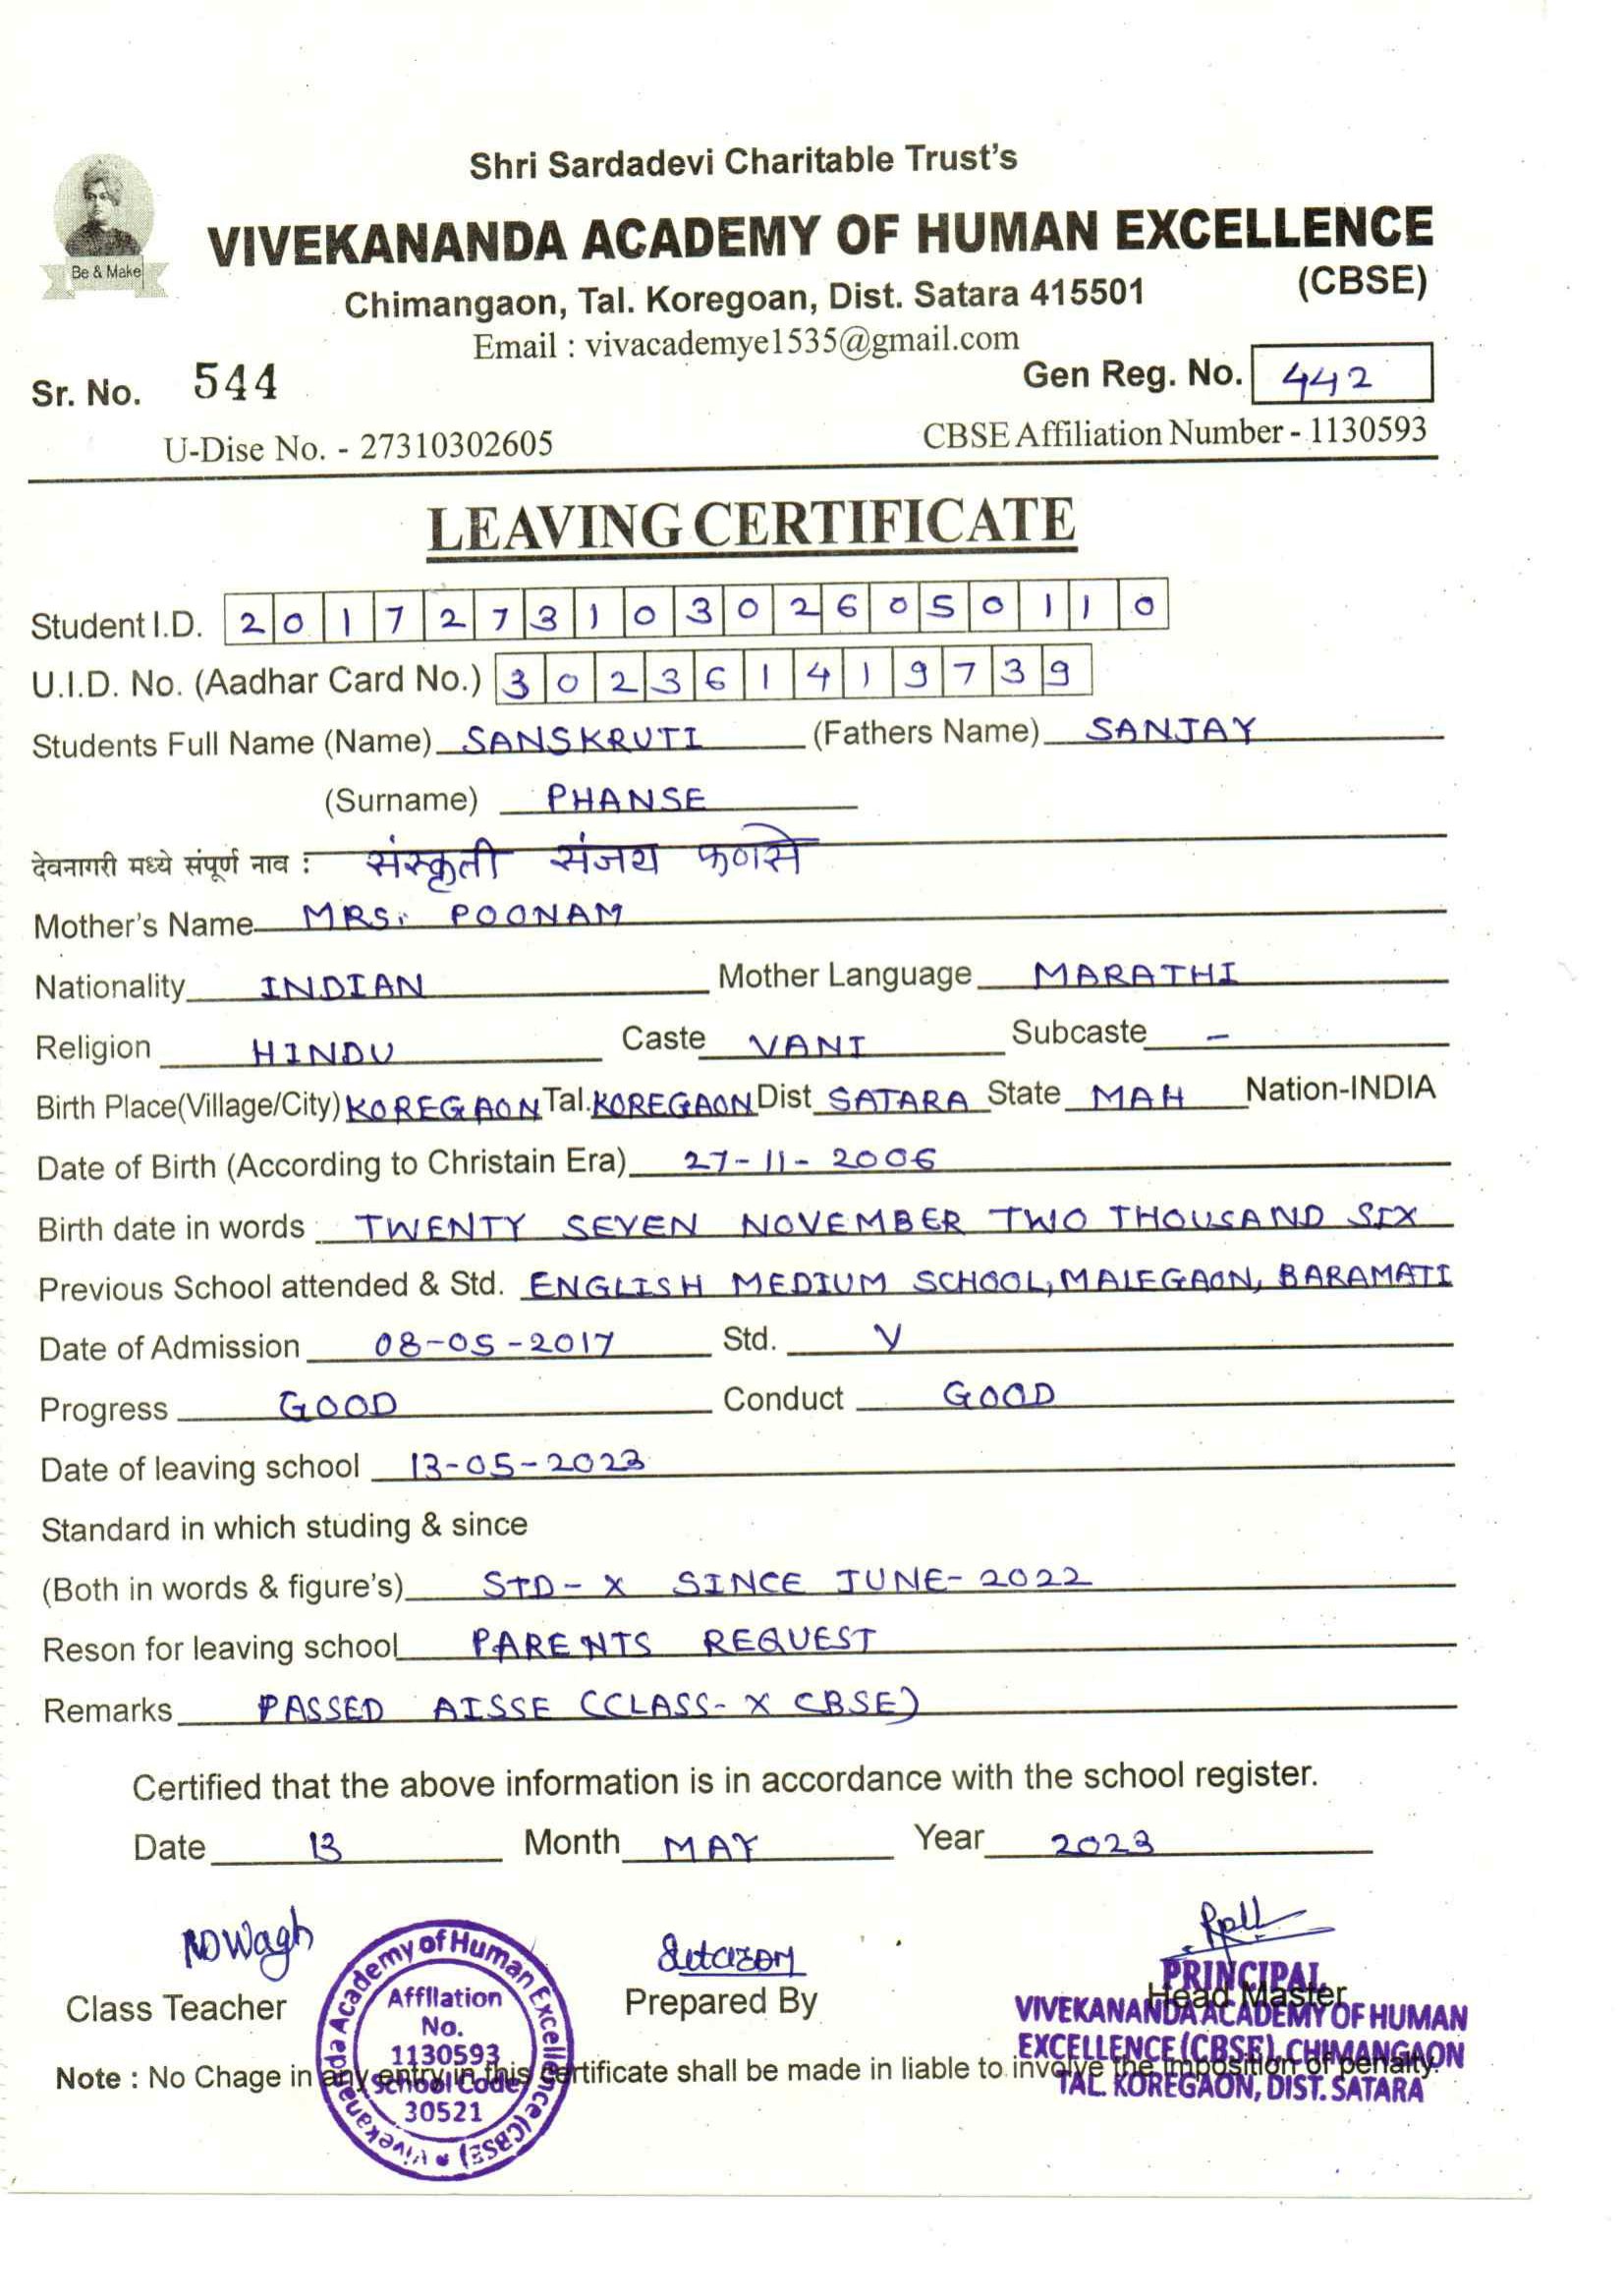 Shri Sardadevi Charitable Trust's
VIVEKANANDA ACADEMY OF HUMAN EXCELLENCE
Be & Make
(CBSE)
Chimangaon, Tal. Koregoan, Dist. Satara 415501
Email : vivacademye1535@gmail.com
Sr. No. 544 Gen Reg. No. 442
U-Dise No. - 27310302605 CBSE Affiliation Number - 1130593
LEAVING CERTIFICATE
Student I.D. 2017273103026050110
U.I.D. No. (Aadhar Card No.) 302361419739
Students Full Name (Name) SANSKRUTI (Fathers Name) SANJAY
(Surname) PHANSE
देवनागरी मध्ये संपूर्ण नाव : संस्कृती संजय फणसे
Mother's Name MRS. POONAM
Nationality INDIAN Mother Language MARATHI
Religion HINDU Caste VANI Subcaste -
Birth Place(Village/City) KOREGAON Tal. KOREGAON Dist SATARA State MAH Nation-INDIA
Date of Birth (According to Christain Era) 27-11-2006
Birth date in words TWENTY SEVEN NOVEMBER TWO THOUSAND SIX
Previous School attended & Std. ENGLISH MEDIUM SCHOOL, MALEGAON, BARAMATI
Date of Admission 08-05-2017 Std. V
Progress GOOD Conduct GOOD
Date of leaving school 13-05-2023
Standard in which studing & since
(Both in words & figure's) STD- X SINCE JUNE-2022
Reson for leaving school PARENTS REQUEST
Remarks PASSED AISSE (CLASS- X CBSE)
Certified that the above information is in accordance with the school register.
Date 13 Month MAY Year 2023
NDWagh
Class Teacher Prepared By Head Master
Vivekananda Academy of Human Excellence (CBSE)
Affilation
No.
1130593
School Code
30521
PRINCIPAL
VIVEKANANDA ACADEMY OF HUMAN
EXCELLENCE (CBSE), CHIMANGAON
TAL. KOREGAON, DIST. SATARA
Note : No Chage in any entry in this certificate shall be made in liable to involve the imposition of penalty.